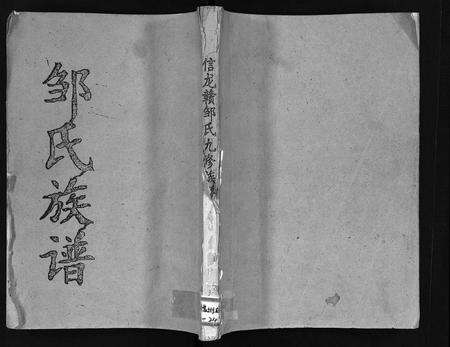 邹氏族谱
信龙赣邹氏九修族